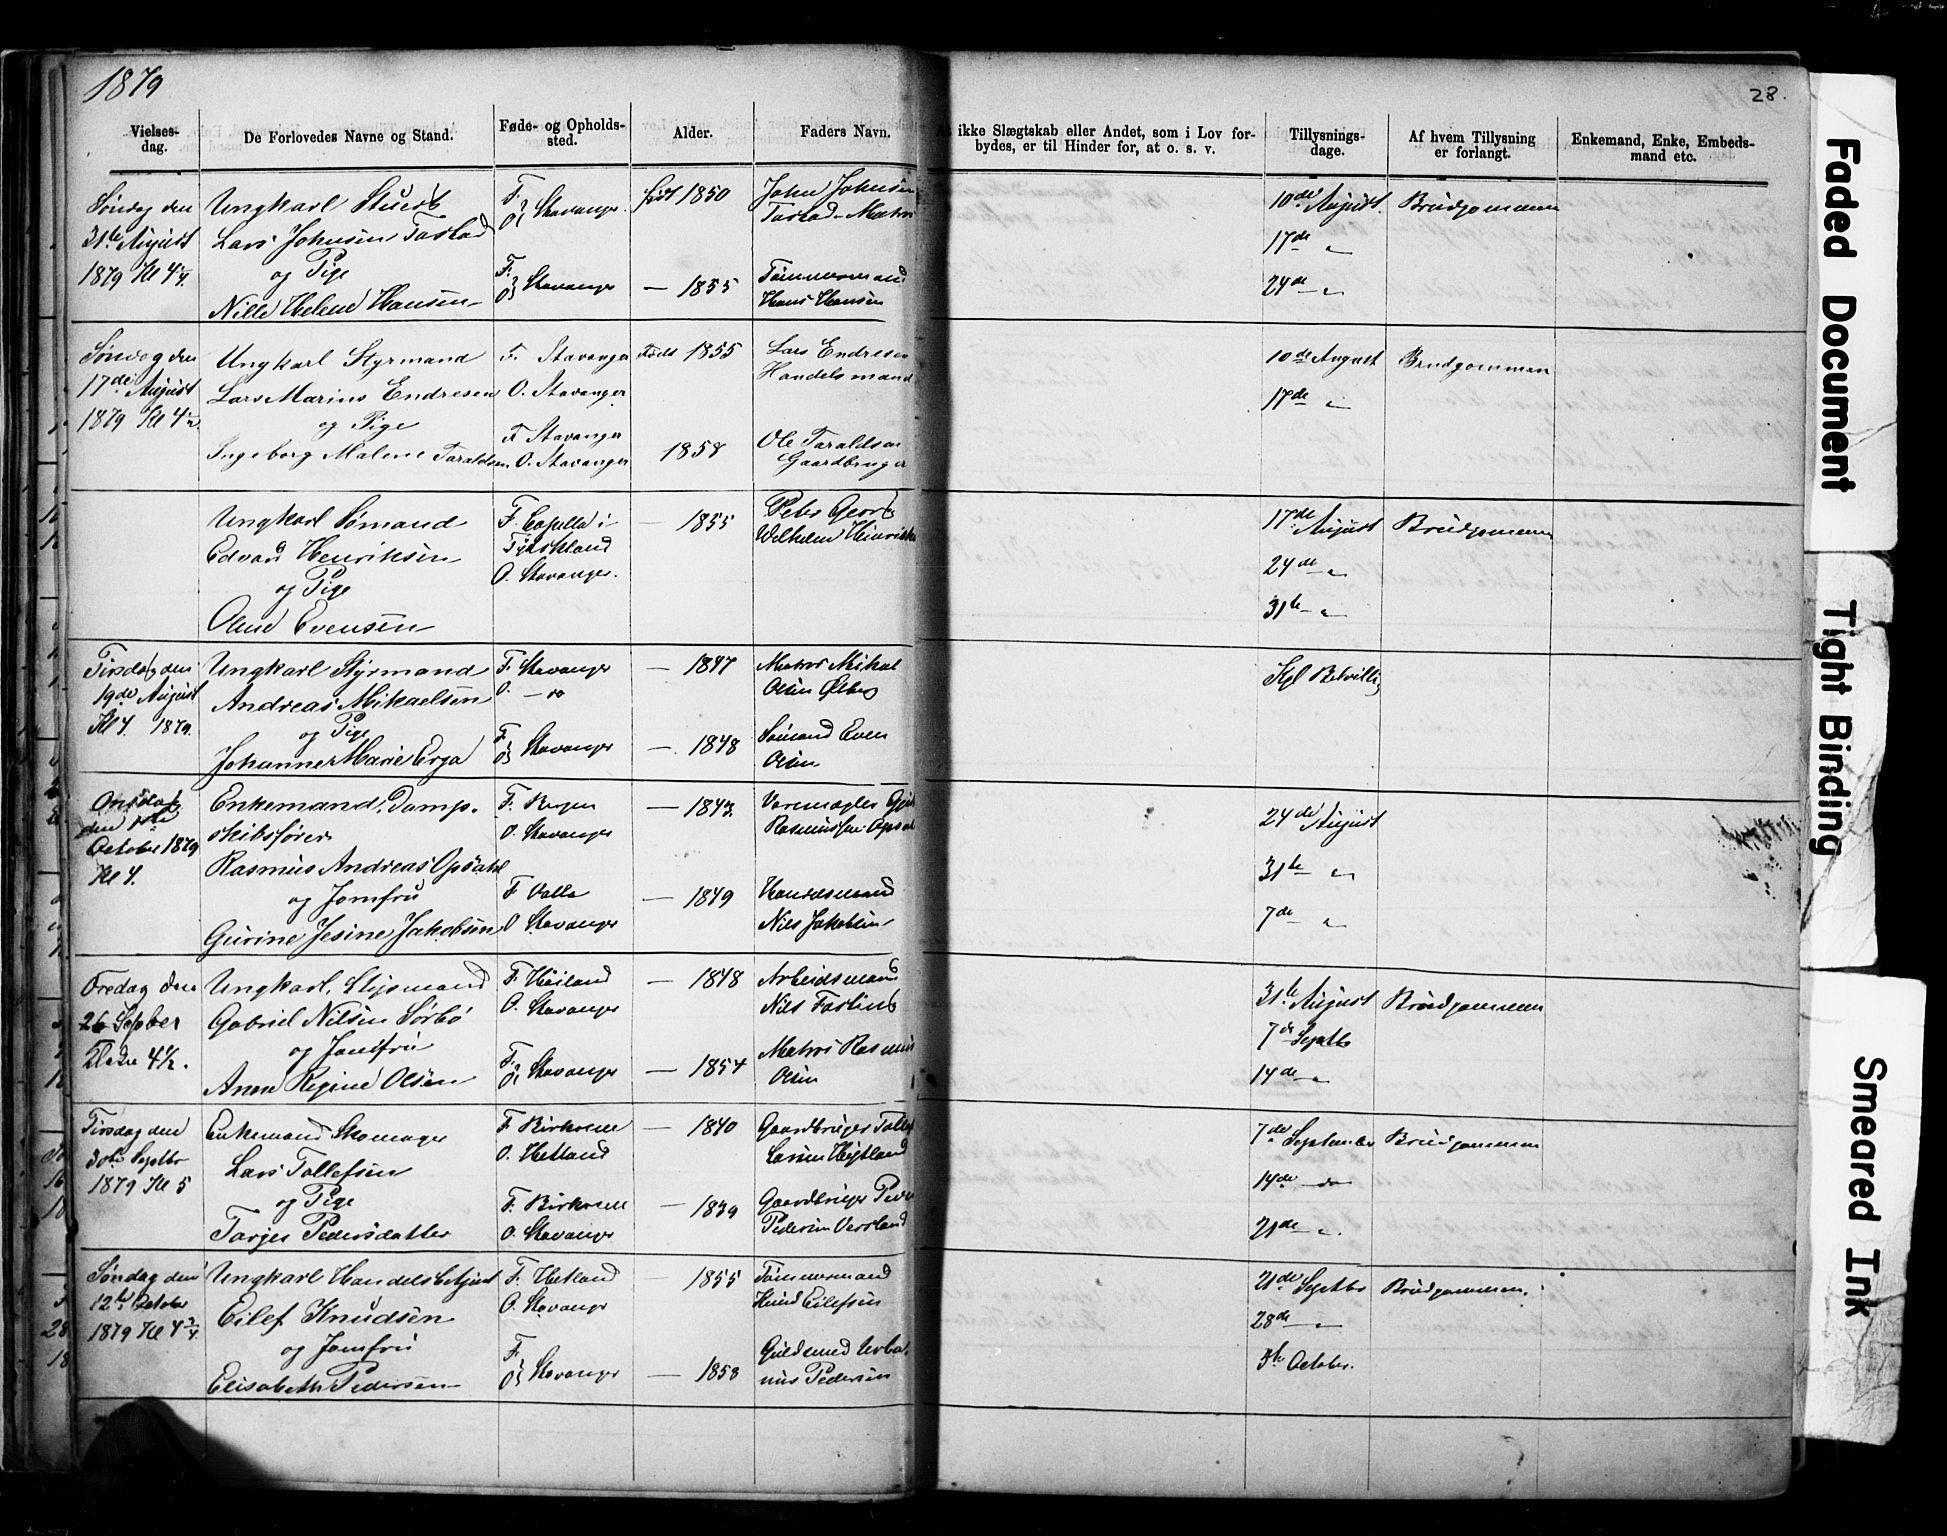 1879
28.
Vielses-
dag.
De Forlovedes Navne og Stand.
Føde- og Opholds-
sted.
Alder.
Faders Navn.
At ikke Slægtskab eller Andet, som i Lov for-
bydes, er til Hinder for, at o. s. v.
Tillysnings-
dage.
Af hvem Tillysning
er forlangt.
Enkemand, Enke, Embeds-
mand etc.
Søndag den
31te August
1879 Kl 4¼.
Ungkarl Stuert
Lars Johnsen Tastad
og Pige
Nille Helene Hansen
F. & O. Stavanger.
F. & O. Stavanger
født 1850
— 1855
John Johnsen
Tastad. Matros
Tømmermand
Hans Hansen
10de August.
17de "
24de "
Brudgommen
Søndag den
17de August
1879 Kl 4½
Ungkarl Styrmand
Lars Marius Endresen
og Pige
Ingeborg Malene Taraldsen
F. Stavanger
O. Stavanger
F. Stavanger
O. Stavanger
Født 1855
1858
Lars Endresen
Handelsmand
Ole Taraldsen
Gaardbruger
10de August
17de "
Brudgommen
Ungkarl Sømand
Edvard Henriksen
og Pige
Oline Evensen
F. Capella i
Tydskland
O. Stavanger.
— 1855
Peter Georg
Wilhelm Heinrich
17de August
24de "
31te "
Brudgommen
Tirsdag den
19de August
Kl 4. 1879.
Ungkarl Styrmand
Andreas Mikaelsen
og Pige
Johanne Marie Erga
F. Stavanger
O. — do
F. & O. Stavanger
— 1847
— 1848
Matros Mikal
Olsen
Sømand Even
Olsen
Kgl Bevilling
Onsdag
den 1ste
October 1879
Kl 4.
Enkemand, Damp-
skibsfører
Rasmus Andreas Opsahl
og Jomfru
Gurine Jesine Jakobsen
F. Bergen
O. Stavanger
F. Valle
O. Stavanger
— 1843.
— 1849
Varemægler
Rasmussen Opsal
Handelsmand
Nils Jakobsen
24de August
31te "
7de "
Fredag den
26 Septber
Kl 4½.
Ungkarl, Slipsmand
Gabriel Nilsen Sørbø
og Jomfru
Anne Regine Olsen
F. Høiland
O. Stavanger
F. & O. Stavanger
— 1848
— 1854
Arbeidsmand
Nils
Matros Rasmus
Olsen
31te August
7de Septbr
14de "
Brudgommen
Tirsdag den
30te Septbr
1879 Kl 5
Enkemand Skomager
Lars Tollefsen
og Pige
Tarjer Pedersdatter
F. Birkreim
O. Hetland
F. Birkreim
O. Stavanger
— 1840
— 1839
Gaardbruger Tollef
Larsen
Gaardbruger Peder
Pedersen
7de September
14de — do
21de "
Brudgommen
Søndag den
12te October
1879 Kl 4¾
Ungkarl Handelsbetjent
Eilef Knudsen
og Jomfru
Elisabeth Pedersen
F. Hetland
O. Stavanger
F. & O. Stavanger
— 1855
— 1858
Tømmermand
Knud Eilefsen
Guldsmed Urba-
nus Pedersen
21de Septbr
28de "
5te October.
Brudgommen.
Faded Document
Tight Binding
Smeared Ink